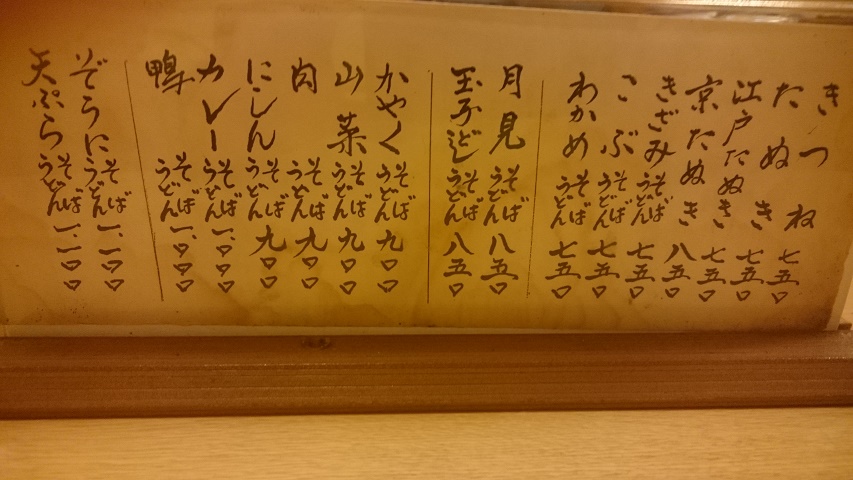 きつね 七五〇
たぬき 七五〇
江戸たぬき 七五〇
京たぬき 八〇〇
きざみ そば うどん 七五〇
こぶ そば うどん 七五〇
わかめ そば うどん 七五〇
月見 そば うどん 八五〇
玉子とじ そば うどん 八五〇
かやく そば うどん 九〇〇
山菜 そば うどん 九〇〇
肉 そば うどん 九〇〇
にしん そば うどん 九〇〇
カレー そば うどん 一、〇〇〇
鴨 そば うどん 一、〇〇〇
ぞうに そば うどん 一、一〇〇
天ぷら そば うどん 一、一〇〇